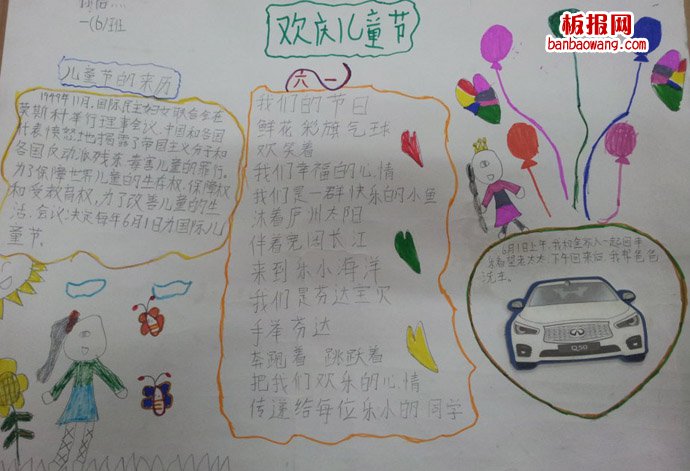 一(6)班
欢庆儿童节
板报网
banbaowang.com
儿童节的来历
1949年11月,国际民主妇女联合会在
莫斯科举行理事会议,中国和各国
代表愤怒地揭露了帝国主义分子和
各国反动派残杀、毒害儿童的罪行。
为了保障世界儿童的生存权、保障权
和受教育权,为了改善儿童的生
活,会议决定每年6月1日为国际儿
童节。
六一
我们的节日
鲜花 彩旗 气球
欢笑着
我们幸福的心情
我们是一群快乐的小鱼
沐着庐州太阳
伴着宽阔长江
来到乐小海洋
我们是芬达宝贝
手举芬达
奔跑着 跳跃着
把我们欢乐的心情
传递给每位乐小的同学
6月1日上午,我和全家人一起回
老太太,下午回来后,我帮爸爸
洗车。
Q50